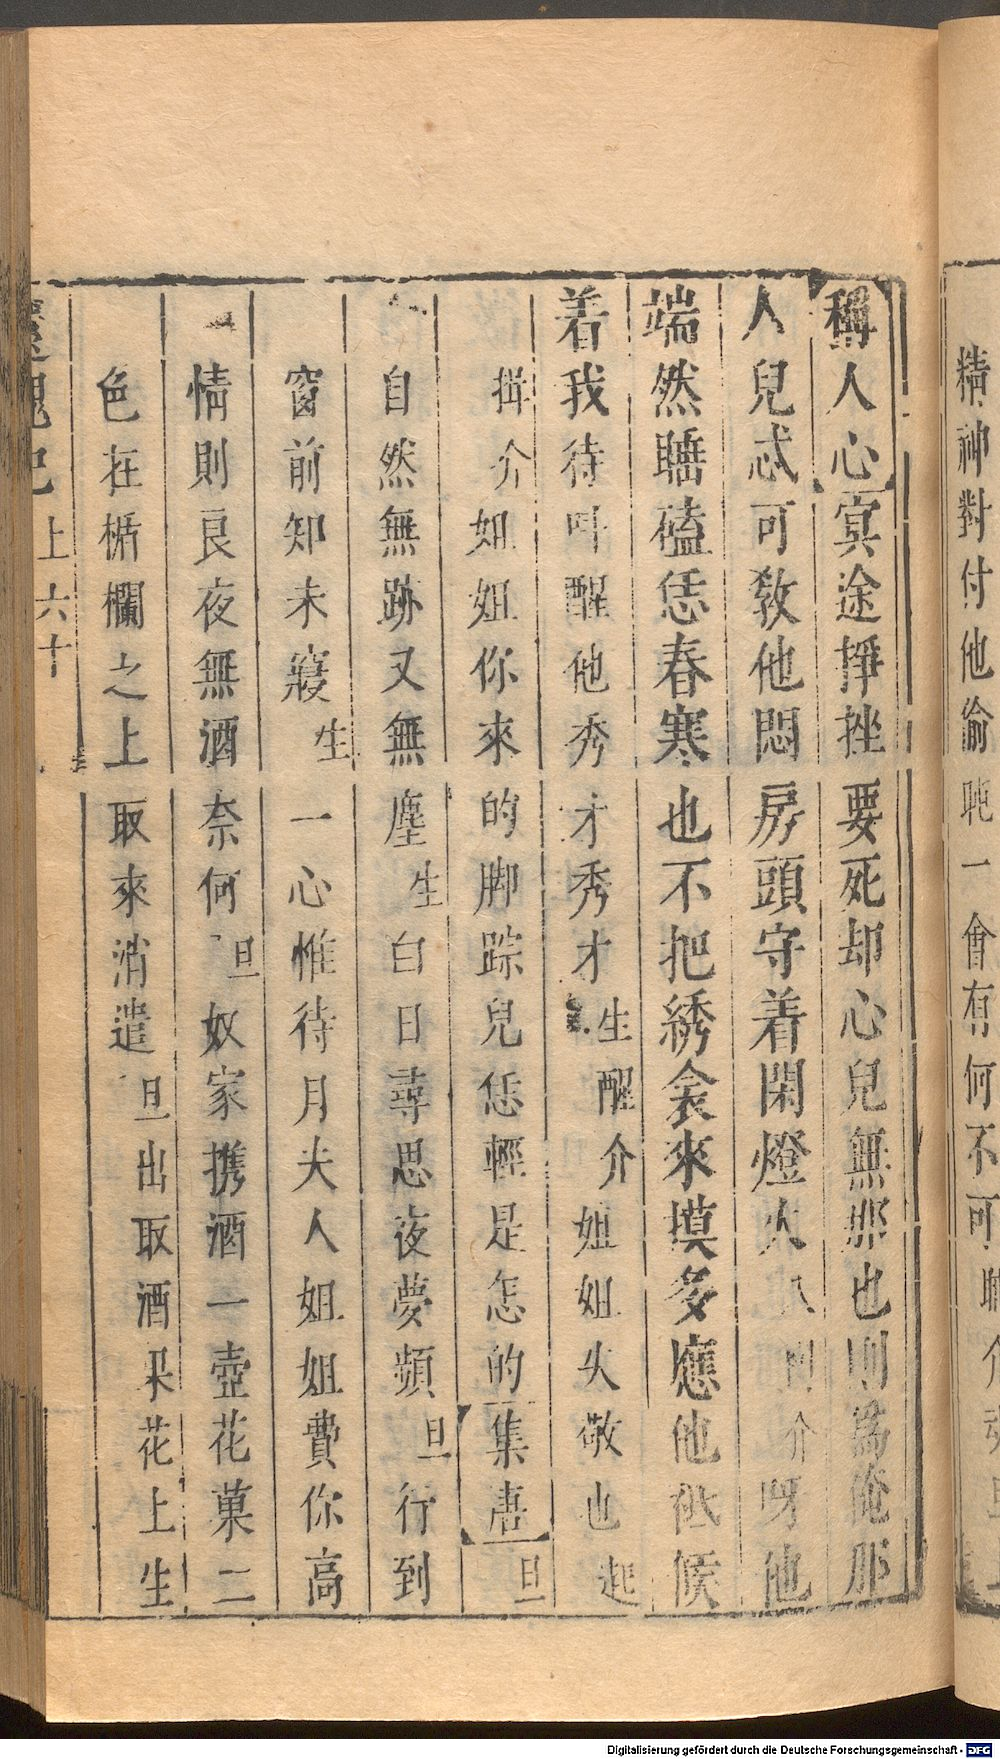 精神對付他偷盹一會有何不可
稱人心冥途掙挫要死却心兒無那也則爲俺那
人兒忒可敎他悶房頭守着閑燈火 介呀他
端然睡磕恁春寒也不把綉衾來摸多應他祗候
着我待呌醒他秀才秀才生醒介姐姐失敬也起
揖介姐姐你來的脚踪兒恁輕是怎的集唐旦
自然無跡又無塵生白日尋思夜夢頻旦行到
窗前知未寢生一心惟待月夫人姐姐費你高
情則良夜無酒奈何旦奴家携酒一壺花菓二
色在楯欄之上取來消遣旦出取酒果花上生
還魂記 上 六十
Digitalisierung gefördert durch die Deutsche Forschungsgemeinschaft - DFG